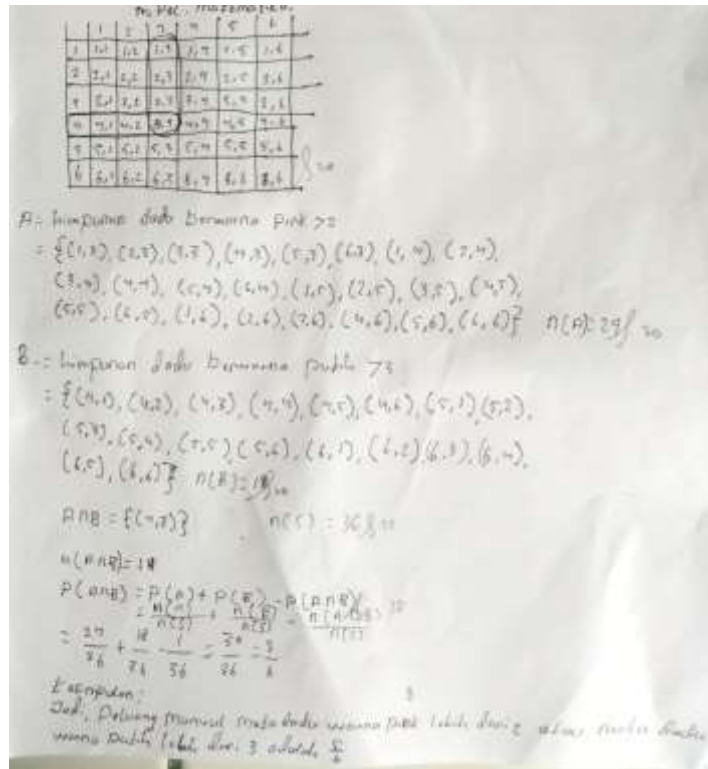 1 2 3 4 5 6
1 1,1 1,2 1,3 1,4 1,5 1,6
2 2,1 2,2 2,3 2,4 2,5 2,6
3,1 3,2 3,3 3,4 3,6
4,1 4,2 4,4 4,5
5 5,1 5,2 5,3 5,4 5,5 5,6
6 6,1 6,2 6,3
A = himpunan dadu berwarna pink >2
= {(1,3), (2,3), (3,3), (4,3), (5,3), (6,3), (1,4), (2,4),
(3,4), (4,4), (5,4), (6,4), (1,5), (2,5), (3,5), (4,5),
(5,5), (6,5), (1,6), (2,6), (3,6), (4,6), (5,6), (6,6)} n(A) =
B = himpunan dadu berwarna putih >3
= {(4,1), (4,2), (4,3), (4,4), (4,5), (4,6), (5,1) (5,2),
(5,3), (5,4), (5,5) (5,6), (6,1), (6,2) (6,3), (6,4),
(6,5), (6,6)} n(B) = 18
A∩B = {(4,3)} n(S) = 36
n(A∩B) =
P(A∩B) = P(A) + P(B) - P(A∩B)
= n(A)/n(S) + n(B)/n(S) - n(A∩B)/n(S)
= /36 + 18/36 - 1/36 = /36 = 5/6
Jadi, Peluang muncul mata dadu warna pink lebih dari 2 atau mata dadu
warna putih lebih dari 3 adalah 5/6